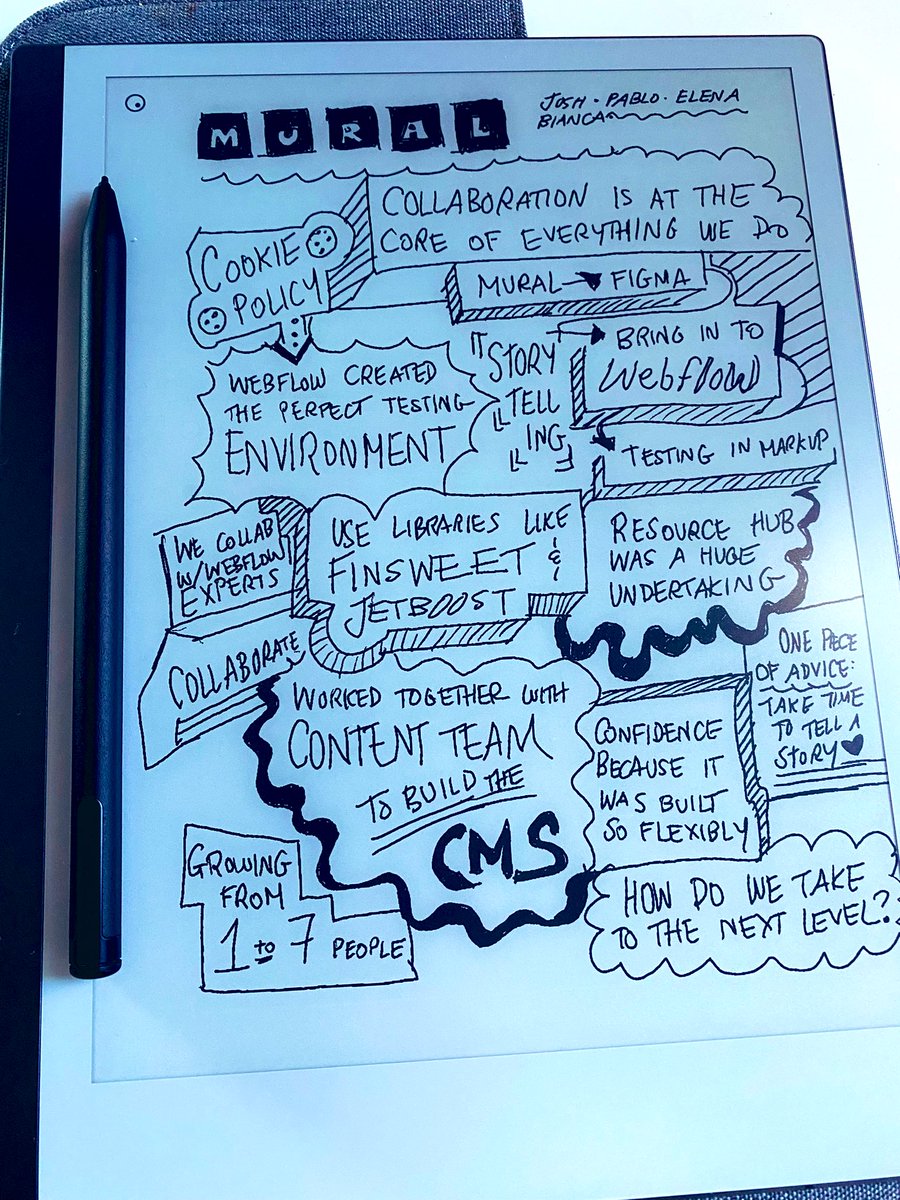 MURAL
JOSH · PABLO · ELENA
BIANCA
COLLABORATION IS AT THE
CORE OF EVERYTHING WE DO
COOKIE
POLICY
MURAL → FIGMA
BRING IN TO
Webflow
TESTING IN MARKUP
"STORY
TELL
ING"
WEBFLOW CREATED
THE PERFECT TESTING
ENVIRONMENT
WE COLLAB
W/WEBFLOW
EXPERTS
USE LIBRARIES LIKE
FINSWEET &
JETBOOST
RESOURCE HUB
WAS A HUGE
UNDERTAKING
COLLABORATE
WORKED TOGETHER WITH
CONTENT TEAM
TO BUILD THE
CMS
CONFIDENCE
BECAUSE IT
WAS BUILT
SO FLEXIBLY
ONE PIECE
OF ADVICE:
TAKE TIME
TO TELL A
STORY ♥
GROWING
FROM
1 to 7 PEOPLE
HOW DO WE TAKE
TO THE NEXT LEVEL?